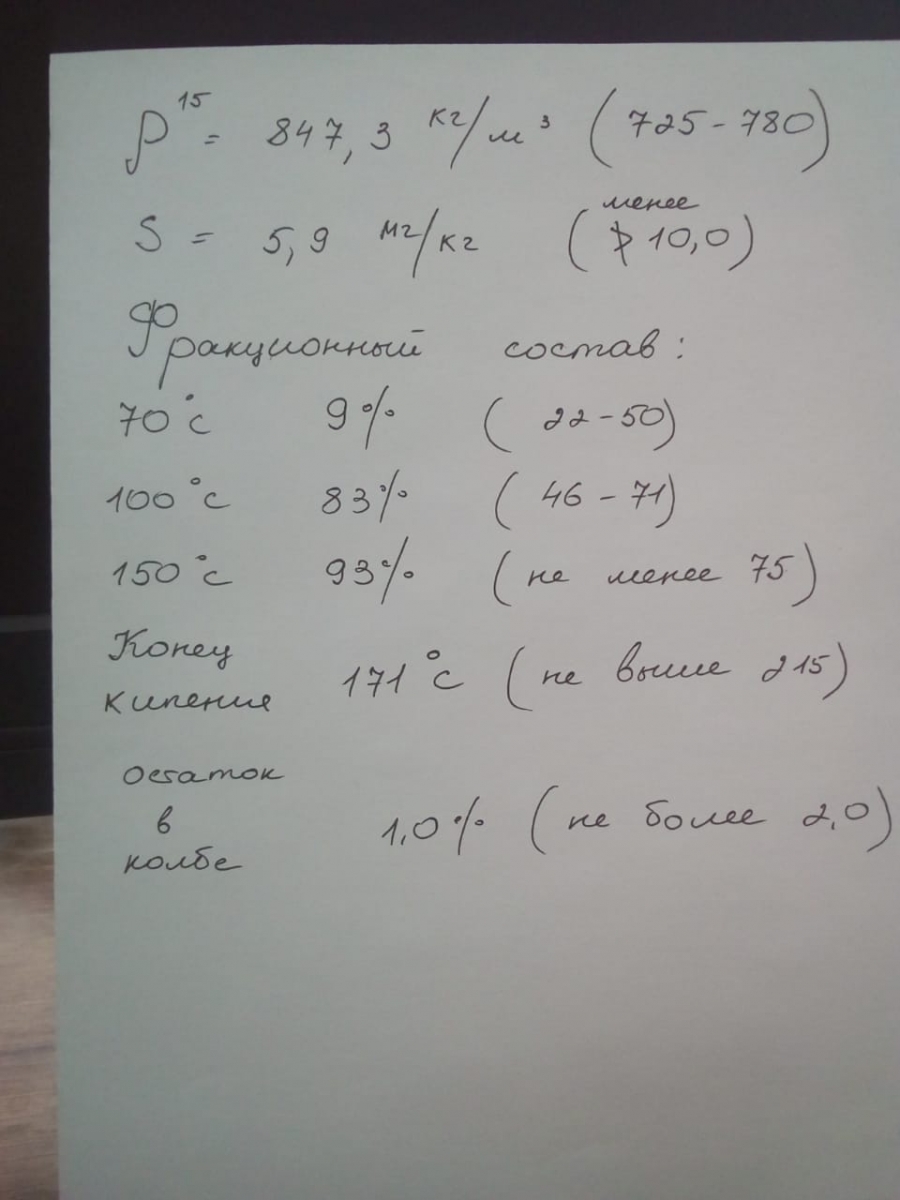 ρ¹⁵ = 847,3 кг/м³ (725-780)
менее
S = 5,9 мг/кг (10,0)
Фракционный состав:
70°с 9% (22-50)
100°с 83% (46-71)
150°с 93% (не менее 75)
Конец
кипения 171°с (не выше 215)
остаток
в
колбе 1,0% (не более 2,0)